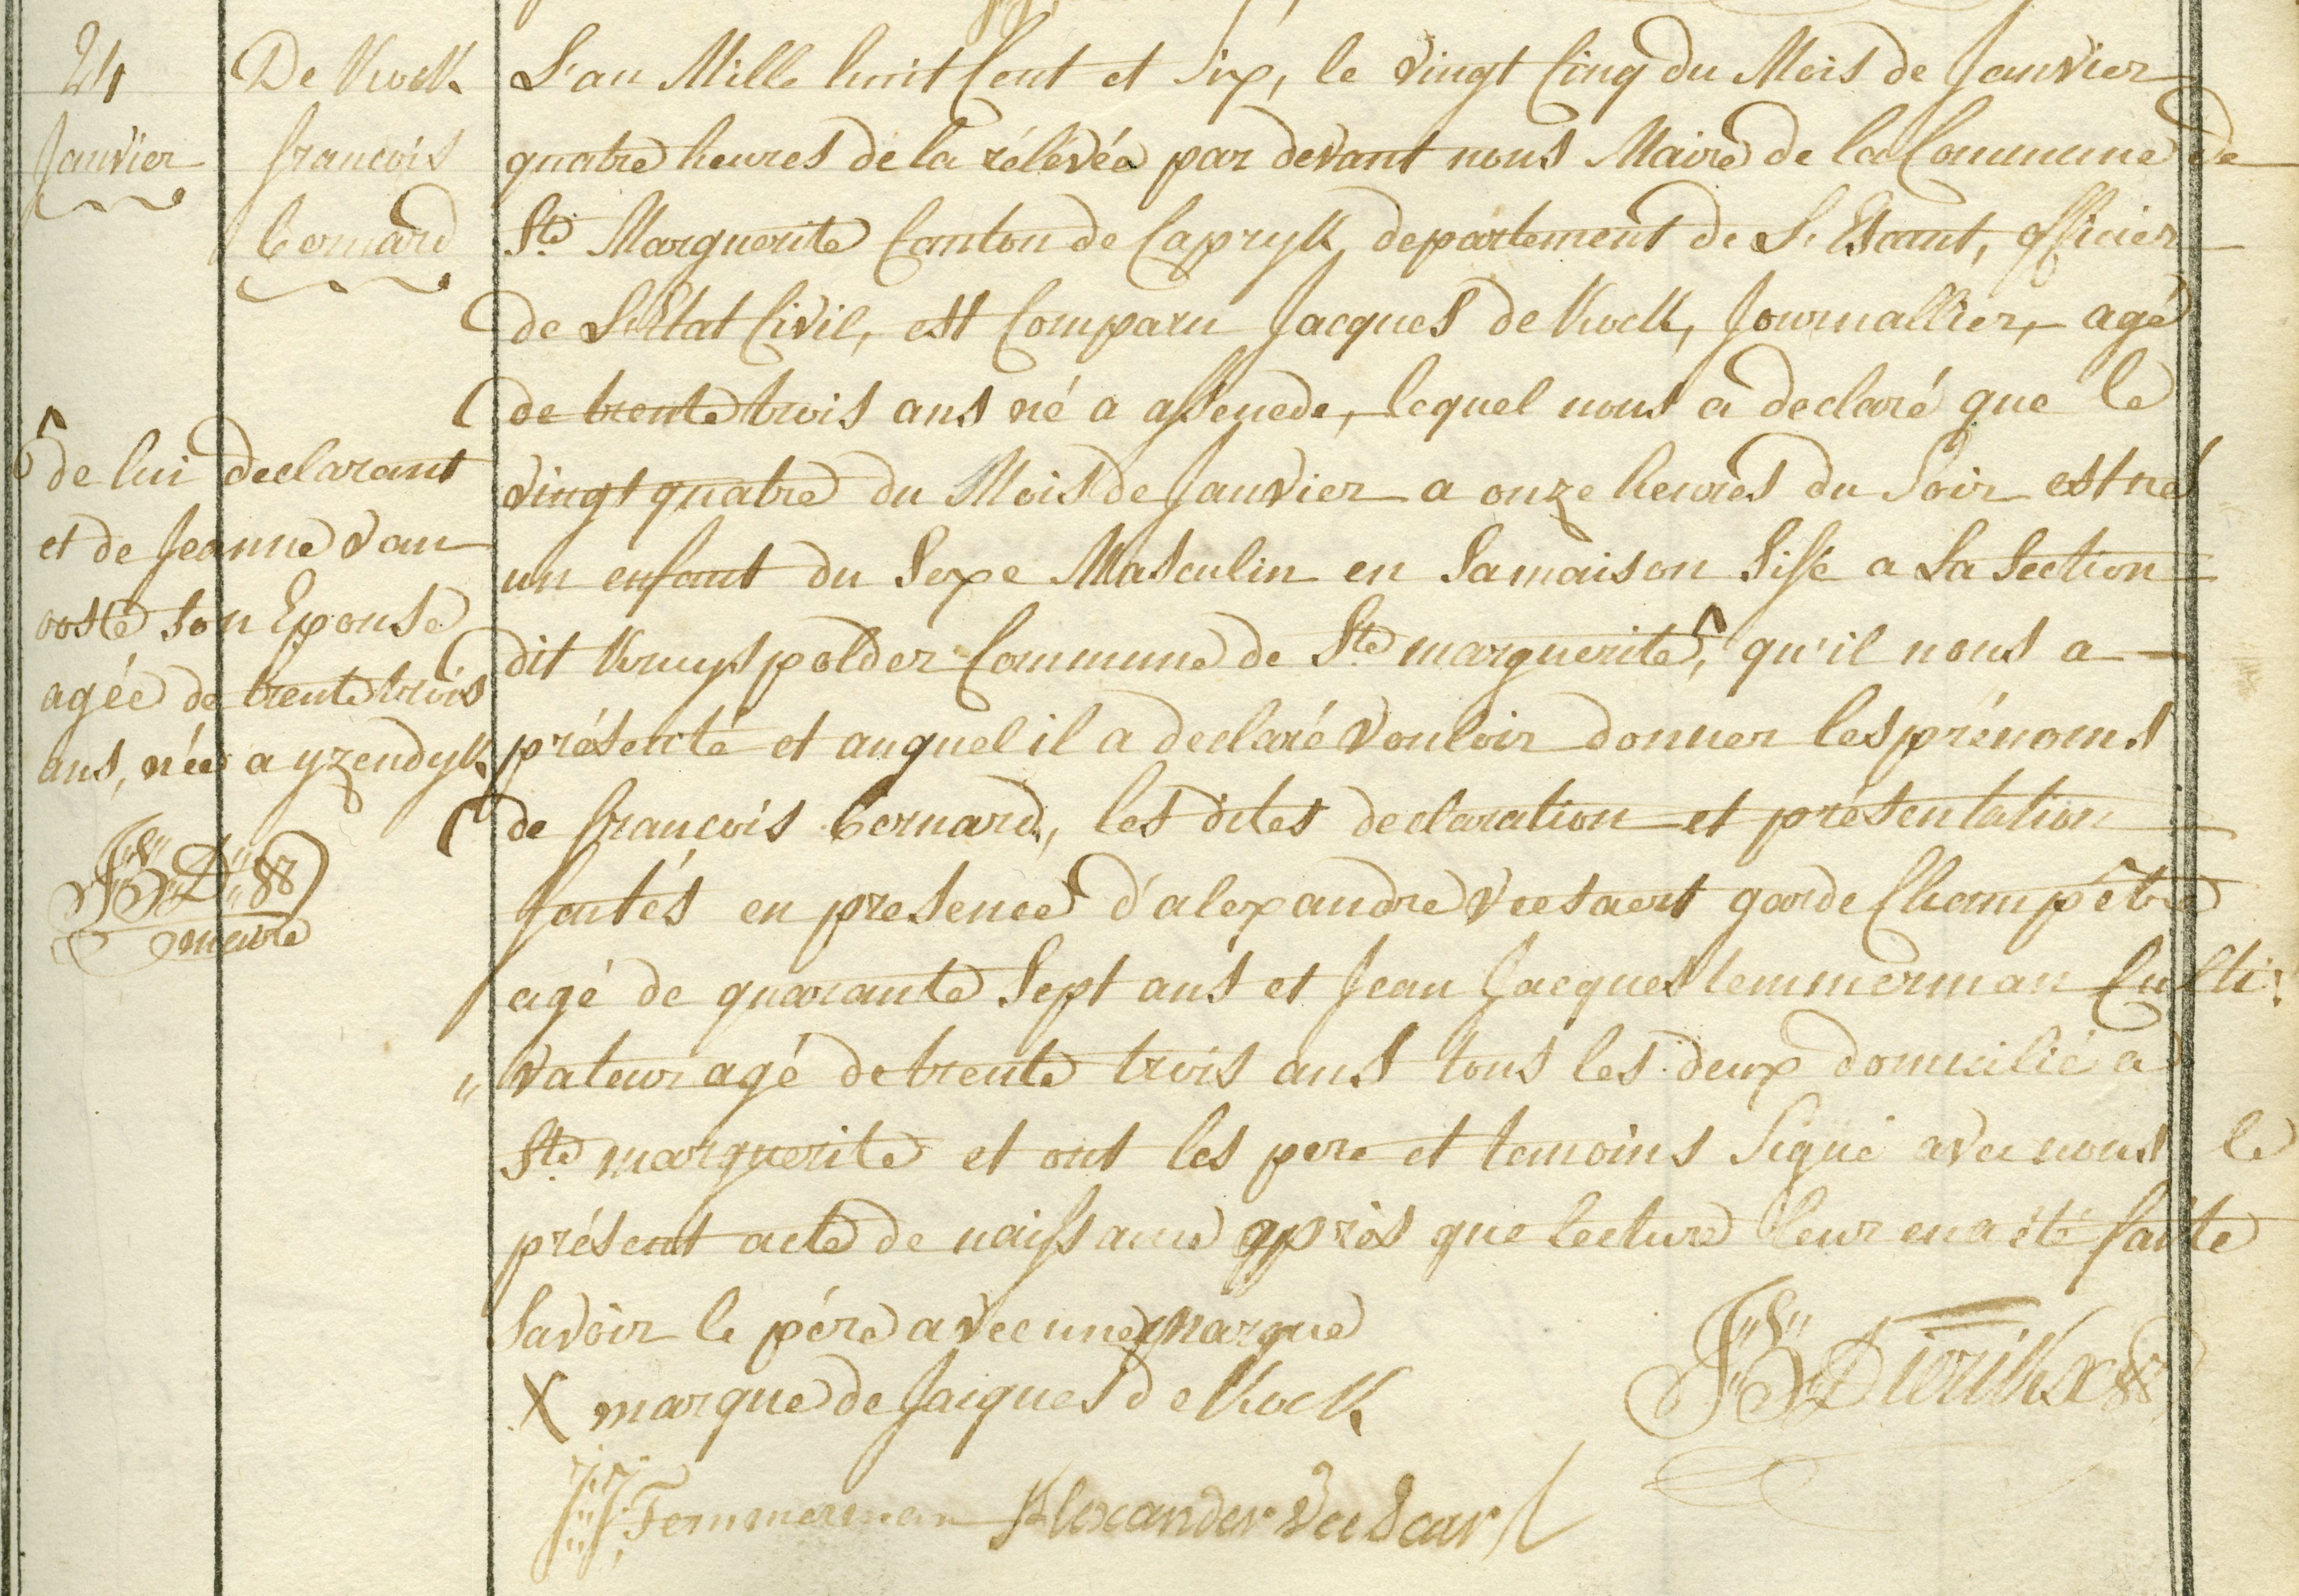 24
Janvier
De Kock
francois
bernard
L'an Mille huit Cent et Six, le Vingt Cinq du Mois de Janvier
quatre heures de la rélévée par devant nous Maire de la Commune de
Ste Marguerite Canton de Capryk, departement de L'Escaut, officier
de L'Etat Civil, est Comparu Jacques de Kock, Journallier, agé
de trente trois ans né a assenede, lequel nous a declaré que le
vingt quatre du Mois de Janvier a onze heures du Soir est né
un enfant du Sexe Masculin en Sa maison Sise a La Section
dit Kruyspolder Commune de Ste marguerite, qu'il nous a
présenté et auquel il a declaré Vouloir donner les prénoms
de francois bernard, les dites declaration et présentation
faites en presence d'alexandre Veesaert garde Champêtre
agé de quarante Sept ans et Jean Jacques temmerman Culti:
" vateur agé de trente trois ans tous les deux domicilié a
Ste marguerite et ont les pere et temoins Signé avec nous le
présent acte de naissance après que lecture leur en a été faite
Savoir le pére avec une marque
X marque de Jacques de Kock
de lui declarant
et de Jeanne van
ooste son Epouse
agée de trente trois
ans, née a yzendyk
maire
JB Dierikx
JJ Temmerman Alexander Vee Saert